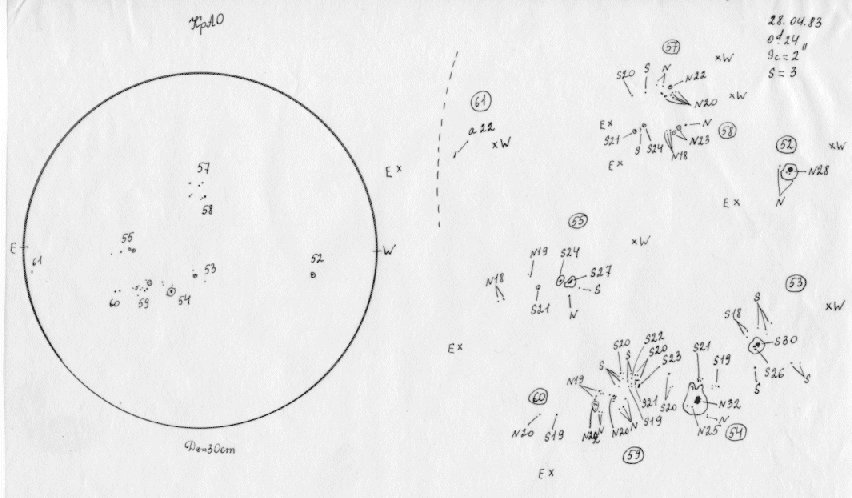 КрАО
28.04.83
9ʰ24
Sc = 2"
S = 3
57
58
55
E
61
53
52
W
60
59
54
D₀=30cm
61
a22
xW
Ex
57
S20 S N
N22
xW
N20
xW
Ex
N
S21 S S24 N18 N23
58
Ex
52
xW
N28
N
Ex
55
N19 S24
S27
xW
N18
S
S21
N
Ex
53
S
S18
xW
S30
S26
S
S
S20 S22
S S S20
S23
S21
S19
N19
60
S21
S20
S19
N32
N25 N
54
N20 S19
N22 N N20 N
59
Ex